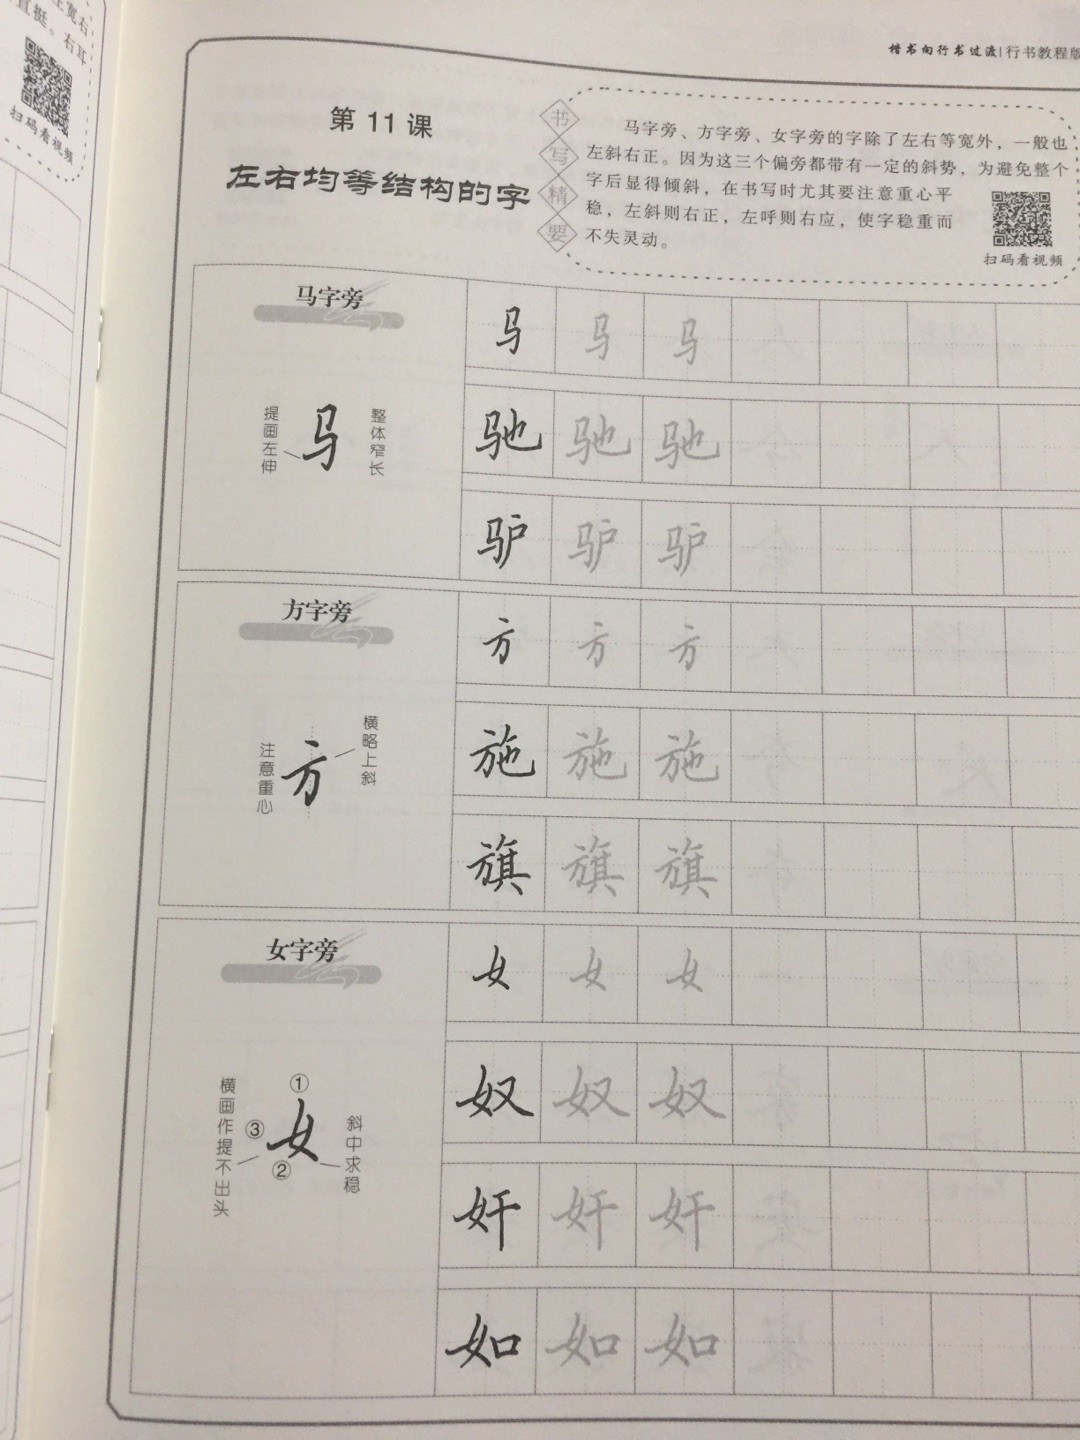 宽右
直挺。右耳
扫码看视频
楷书向行书过渡|行书教程版
第 11 课
左右均等结构的字
书写精要
马字旁、方字旁、女字旁的字除了左右等宽外，一般也
左斜右正。因为这三个偏旁都带有一定的斜势，为避免整个
字后显得倾斜，在书写时尤其要注意重心平
稳，左斜则右正，左呼则右应，使字稳重而
不失灵动。
扫码看视频
马字旁
提画左伸
马
整体窄长
马 马 马
驰 驰 驰
驴 驴 驴
方字旁
注意重心
方
横略上斜
方 方 方
施 施 施
旗 旗 旗
女字旁
横画作提不出头
①
③
②
女
斜中求稳
女 女 女
奴 奴 奴
奸 奸 奸
如 如 如